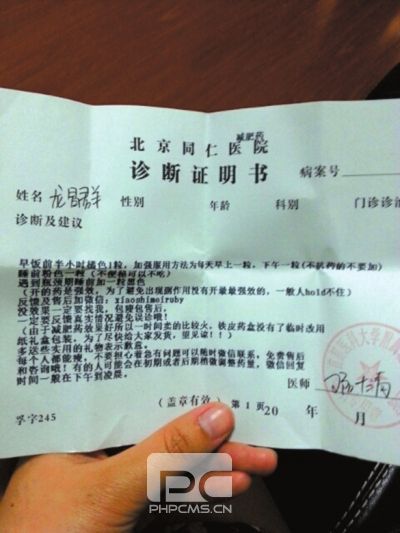 减肥药
北京同仁医院
诊断证明书
病案号
姓名 性别 年龄 科别 门诊诊
诊断及建议
早饭前半小时橘色1粒，加强服用方法为每天早上一粒，下午一粒(不扒药的不要加)
睡前粉色一粒(不便秘可以不吃)
遇到瓶颈期睡前加一粒黑色
(开的药是强效，为了避免出现副作用没有开最最强效的，一般人hold不住)
反馈及售后加微信：xiaoshimeiruby
没效果一定要找我，包瘦包售后，
一定要反馈真实情况避免误诊哦！
(由于减肥药效果好所以一时间卖的比较火，铁皮药盒没有了临时改用
纸礼盒包装，为了尽快给大家发货，望见谅！！)
多送些实用的礼物表示歉意。
每个人都能瘦，不要担心着急有问题可以随时微信联系，免费售后
和咨询哦！有的人可能会在初期或者后期稍微调整药量，微信回复
时间一般在下午到凌晨。
医师
(盖章有效) 第1页 20 年 月
孚字245
PC
PHPCMS.CN